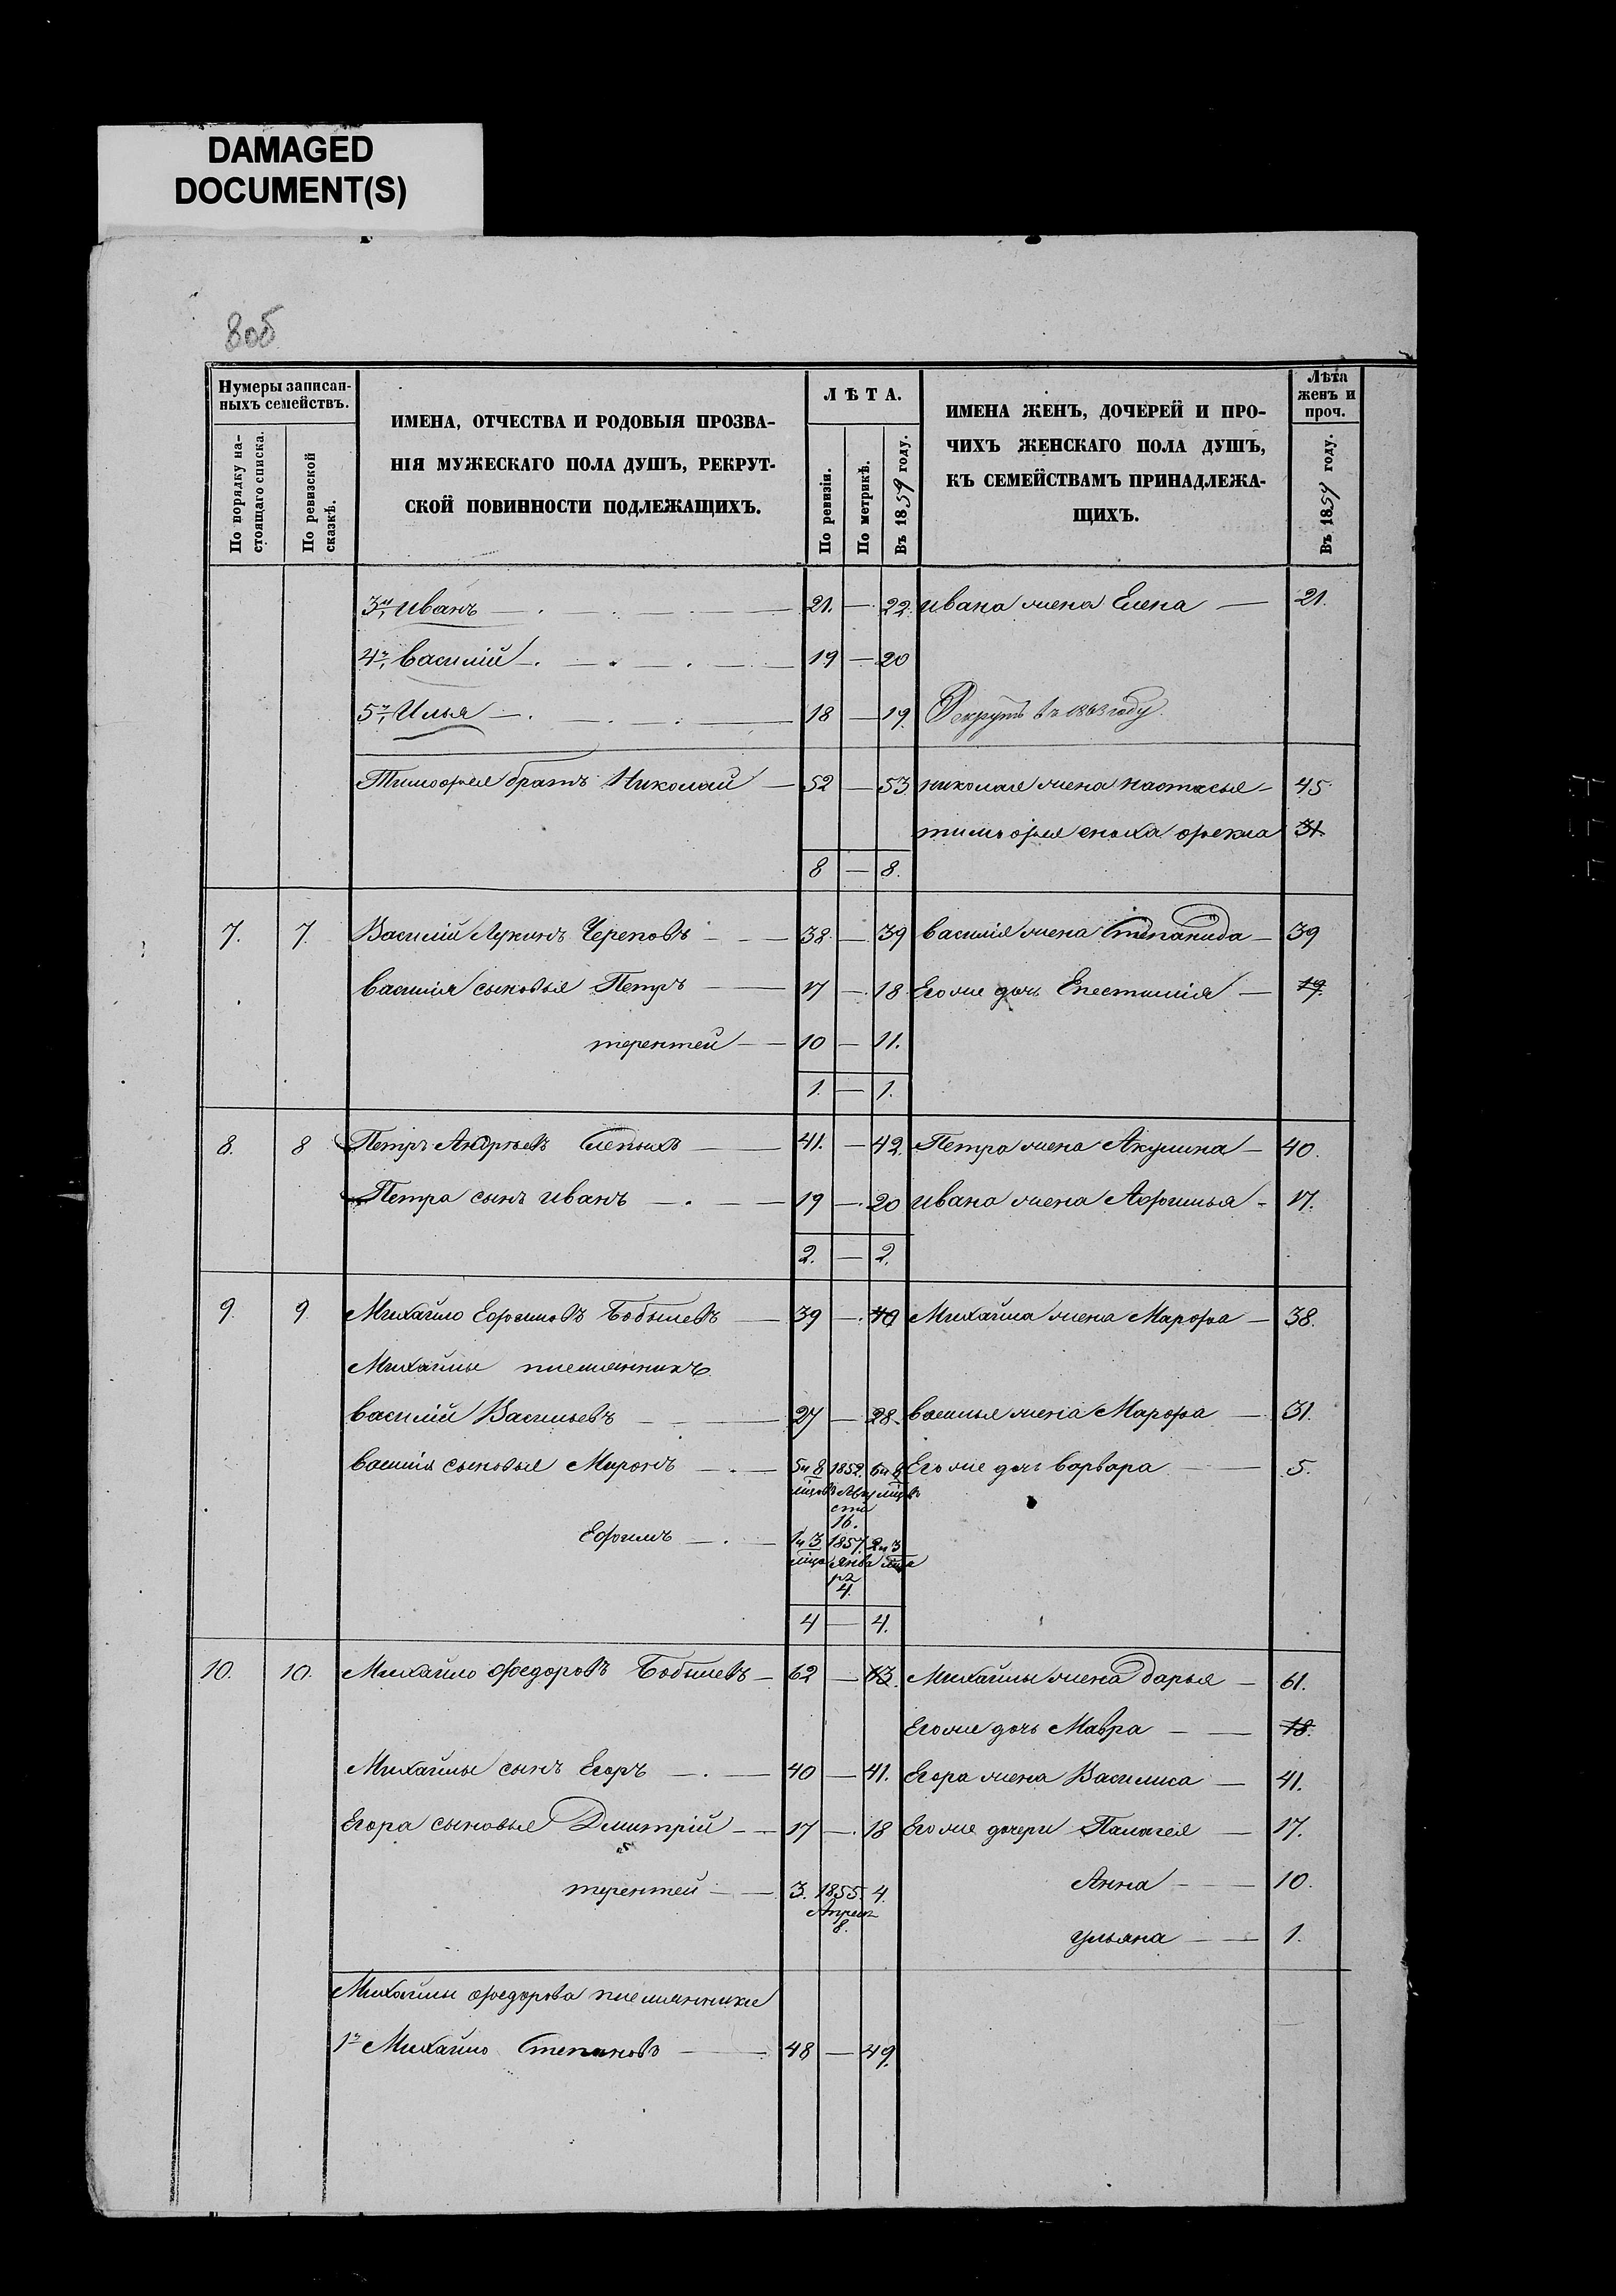 DAMAGED
DOCUMENT(S)
8 об
Нумеры записан-
ныхъ семействъ.
По порядку на-
стоящаго списка.
По ревизской
сказкѣ.
ИМЕНА, ОТЧЕСТВА И РОДОВЫЯ ПРОЗВА-
НІЯ МУЖЕСКАГО ПОЛА ДУШЪ, РЕКРУТ-
СКОЙ ПОВИННОСТИ ПОДЛЕЖАЩИХЪ.
ЛѢТА.
По ревизіи.
По метрикѣ.
Въ 1859 году.
ИМЕНА ЖЕНЪ, ДОЧЕРЕЙ И ПРО-
ЧИХЪ ЖЕНСКАГО ПОЛА ДУШЪ,
КЪ СЕМЕЙСТВАМЪ ПРИНАДЛЕЖА-
ЩИХЪ.
Лѣта
женъ и
проч.
Въ 1859 году.
3й, Иванъ — 21. — 22. Ивана жена Елена — 21.
4й, Василій — 19 — 20
5й, Илья — 18 — 19. Рекрутъ въ 1863 году.
Тимофея братъ Николай — 52 — 53 николая жена настасья — 45.
тимофея сноха фекла 31.
8 — 8.
7. 7. Василій Лукинъ Череповъ — 38 — 39 василія жена Степанида — 39
василія сыновья Петръ — 17 — 18 Его же дочь Епестимія — 19.
терентей — 10 — 11.
1. — 1.
8. 8 Петръ Андрѣевъ Слепыхъ — 41. — 42. Петра жена Акулина — 40.
Петра сынъ иванъ — 19 — 20 ивана жена Афимья — 17.
2. — 2.
9. 9. Михайло Ефимовъ Бобылевъ — 39 — 40 Михайла жена Марфа — 38.
Михайлы племянникъ
василій Васильевъ — 27 — 28. василья жена Марфа — 31.
василія сыновья Миронъ — 5 и 8 1852. 6 и 8 Его же дочь варвара — 5.
мцовъ Авгу мцовъ
ста
16.
Ефимъ — 1 и 3 1857. 2 и 3
мца Янва мца
ря
4.
4 — 4.
10. 10. Михайло федоровъ Бобылевъ — 62 — 63. Михайлы жена дарья — 61.
Его же дочь Мавра — 18.
Михайлы сынъ Егоръ — 40 — 41. Егора жена Василиса — 41.
Егора сыновья Дмитрій — 17 — 18 Его же дочери Палагея — 17.
терентей — 3. 1855. 4. Анна — 10.
Апреля
8.
ульяна — 1.
Михайлы федорова племянники
1й Михайло Степановъ — 48 — 49.